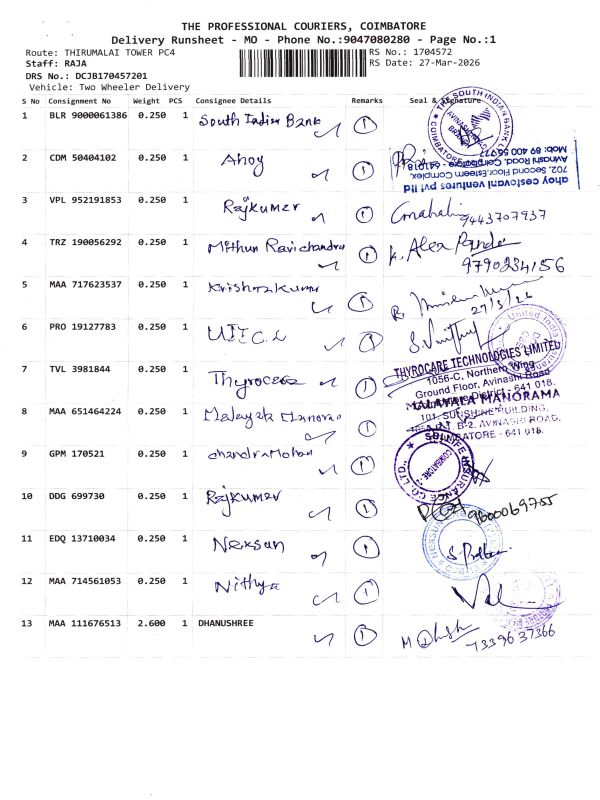 THE PROFESSIONAL COURIERS, COIMBATORE
Delivery Runsheet - MO - Phone No.:9047080280 - Page No.:1
Route: THIRUMALAI TOWER PC4
RS No.: 1704572
Staff: RAJA
RS Date: 27-Mar-2026
DRS No.: DCJB170457201
Vehicle: Two Wheeler Delivery
S No Consignment No Weight PCS Consignee Details Remarks Seal & Signature
1 BLR 9000061386 0.250 1 South Indian Bank 1
THE SOUTH INDIAN BANK
COIMBATORE
2 CDM 50404102 0.250 1 Ahoy 1
ahoy cestovani ventures pvt ltd
702, Second Floor, Esteem Complex,
Avinash Road, Coimbatore - 641018
3 VPL 952191853 0.250 1 Rajkumar 1
9443707937
4 TRZ 190056292 0.250 1 Mithun Ravichandra 1 k. Alex
9790234156
5 MAA 717623537 0.250 1 Krishnakumar 1
27/3/26
6 PRO 19127783 0.250 1 UIIC.L 1
United India
7 TVL 3981844 0.250 1 Thyrocare 1
THYROCARE TECHNOLOGIES LIMITED
1056-C, Northern Wing
Ground Floor, Avinashi Road
641 018.
8 MAA 651464224 0.250 1 Malayala Manorama 1
MALAYALA MANORAMA
101, SUNSHINE BUILDING,
B-2, AVINASHI ROAD,
COIMBATORE - 641 018.
9 GPM 170521 0.250 1 chandraMohan 1
LIFE INSURANCE CO LTD
COIMBATORE
10 DDG 699730 0.250 1 Rajkumar 1
9600069755
11 EDQ 13710034 0.250 1 Nexsan 1
12 MAA 714561053 0.250 1 Nithya 1
13 MAA 111676513 2.600 1 DHANUSHREE 1
7339637366